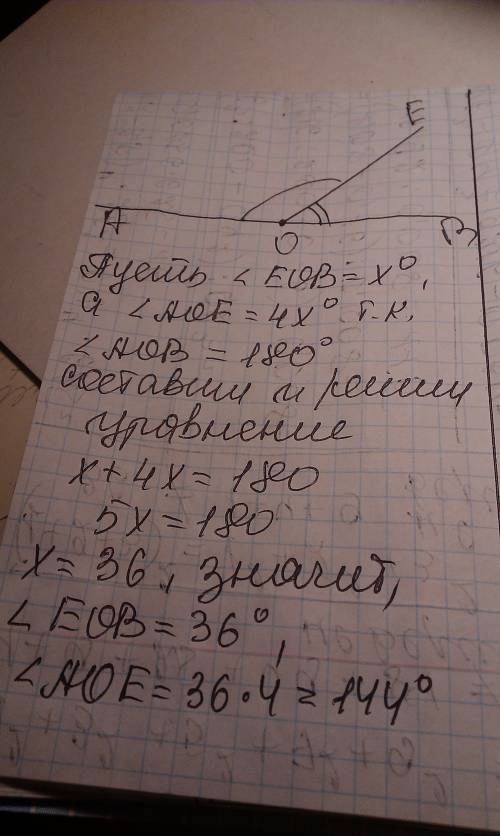 E
A
O
B
Пусть ∠EOB = x°,
а ∠AOE = 4x° т.к.
∠AOB = 180°
составим и решим
уравнение
x + 4x = 180
5x = 180
x = 36, значит,
∠EOB = 36°,
∠AOE = 36 · 4 = 144°